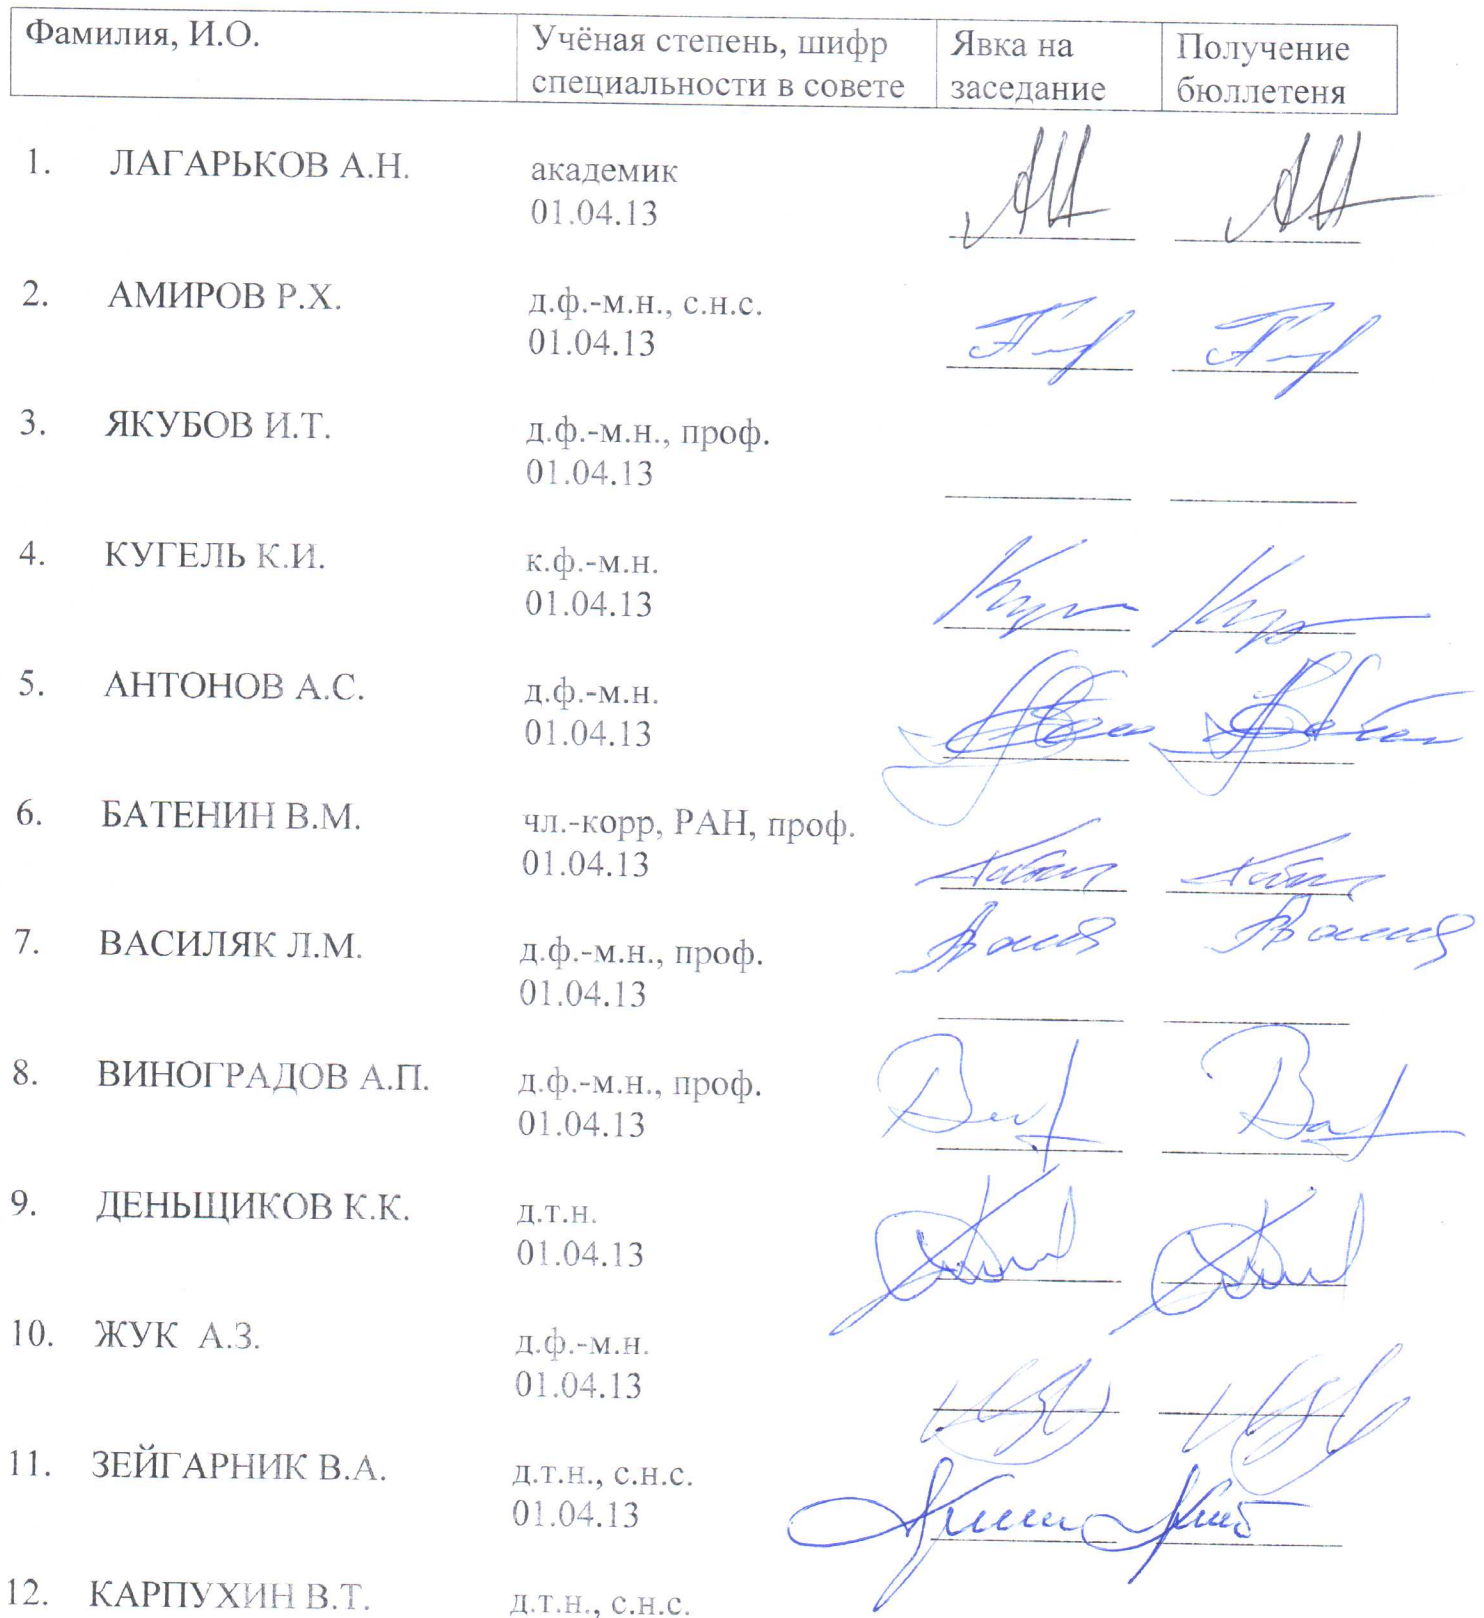 Фамилия, И.О. Учёная степень, шифр Явка на Получение
специальности в совете заседание бюллетеня
1. ЛАГАРЬКОВ А.Н. академик
01.04.13
2. АМИРОВ Р.Х. д.ф.-м.н., с.н.с.
01.04.13
3. ЯКУБОВ И.Т. д.ф.-м.н., проф.
01.04.13
4. КУГЕЛЬ К.И. к.ф.-м.н.
01.04.13
5. АНТОНОВ А.С. д.ф.-м.н.
01.04.13
6. БАТЕНИН В.М. чл.-корр, РАН, проф.
01.04.13
7. ВАСИЛЯК Л.М. д.ф.-м.н., проф.
01.04.13
8. ВИНОГРАДОВ А.П. д.ф.-м.н., проф.
01.04.13
9. ДЕНЬЩИКОВ К.К. д.т.н.
01.04.13
10. ЖУК А.З. д.ф.-м.н.
01.04.13
11. ЗЕЙГАРНИК В.А. д.т.н., с.н.с.
01.04.13
12. КАРПУХИН В.Т. д.т.н., с.н.с.